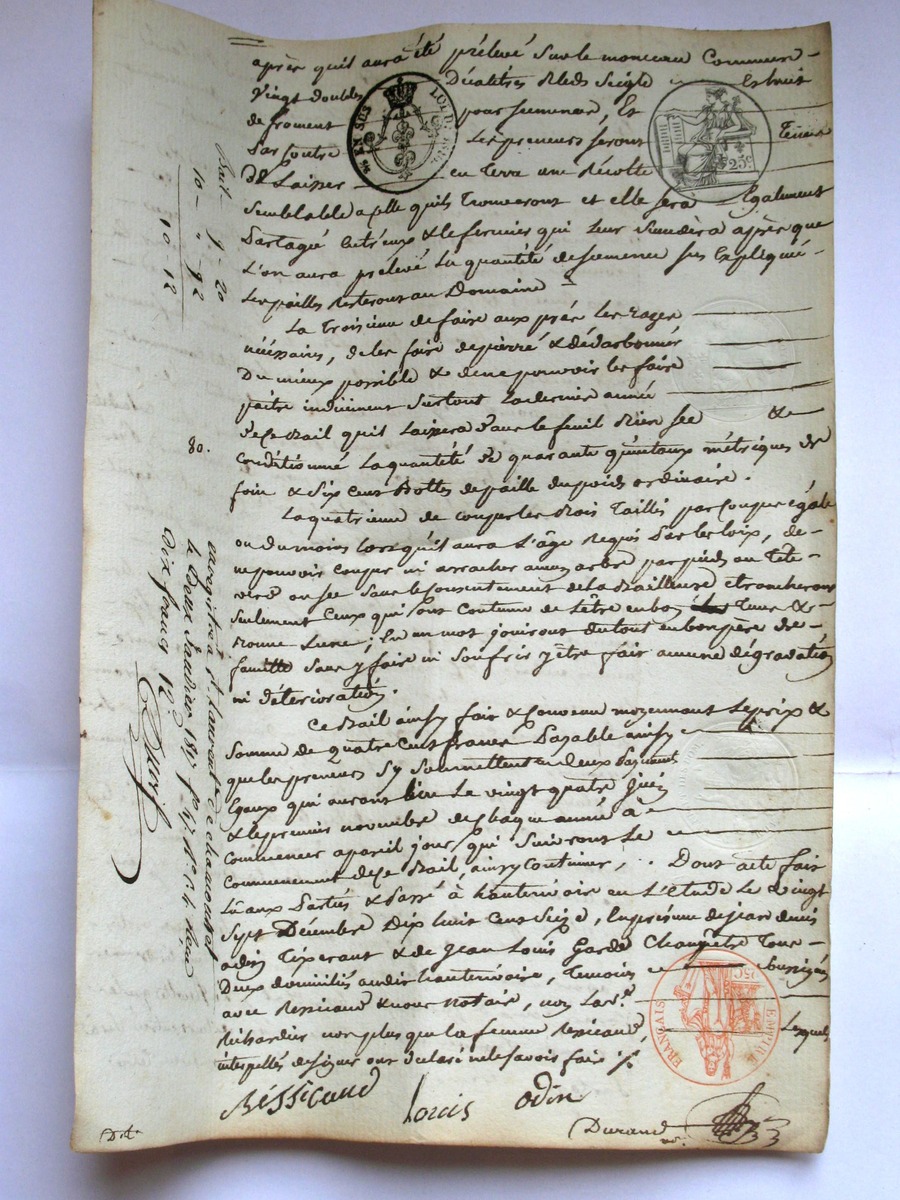 après quil aura été prélevé sur le monceau Commun –
Vingt doubles Décalitres bleds Seigle et huit
de froment pour semence, Et
Par Contre Les preneurs seront Tenus
De Laisser en Terre une Récolte
Semblable a celle quils Trouveront et elle sera Egalement
Partagée entr'eux & le fermier qui leur Succèdera après que
L'on aura prélevé la quantité de semence sus Expliquée –
Les pailles resteront au Domaine
La Troisieme de faire aux prés les Rases
nécessaires, de les faire depierré &
Du mieux possible & de ne pouvoir les faire
paitre induement surtout la derniere année
de ce Bail quil laissera dans le fenil Bien sec &
Conditionné la quantité de quarante quintaux métriques de
foin & six cent Bottes de paille du poids ordinaire.
La quatrieme de couper les Bois Taillis par Coupe egale
ou du moins lorsquil aura L'âge Requis par les loix, de
ne pouvoir couper ni arracher aucun arbre par pieds ou Tete –
verd ou sec sans le Consentement de la Bailleuse et
Seulement Ceux qui sont Coutume de L'être en bon Tems &
Bonne Lune; En un mot jouiront du tout en bon père de –
famille sans y faire ni souffrir y être fait aucune dégradation
ni déterioration.
Ce Bail ainsy fait & Convenu moyennant le prix &
Somme de quatre Cent francs Payable ainsy
que les preneurs s'y soumettent en deux Payements
Egaux qui auront lieu Le vingt quatre juin
& le premier novembre de chaque année à
Commencer a pareil jour qui suivront Le
Commencement de ce Bail, ainsy Continuer, . . Dont acte fait
Lû aux Parties & Passé à hauterivoire en L'étude Le vingt
Sept Décembre Dix huit Cent Seize, En présence de jean denis
odin Tixerant & de Jean Louis Garde Champêtre Tous –
Deux domiciliés audit hauterivoire, Temoins Soussignés
avec Ressicaud & nous notaire, non
Richardier non plus que la femme Ressicaud, Lesquels
interpellés de signer ont déclaré ne le savoir faire
Ressicaud Louis odin
Durand
LOUIS
25c.
EMPIRE FRANÇAIS
Bail – 9 – 20
10 – " – 92
10 – 12
80.
enregistré à St Laurent de chamousset
le Deux Janvier
Dix francs 12 c.